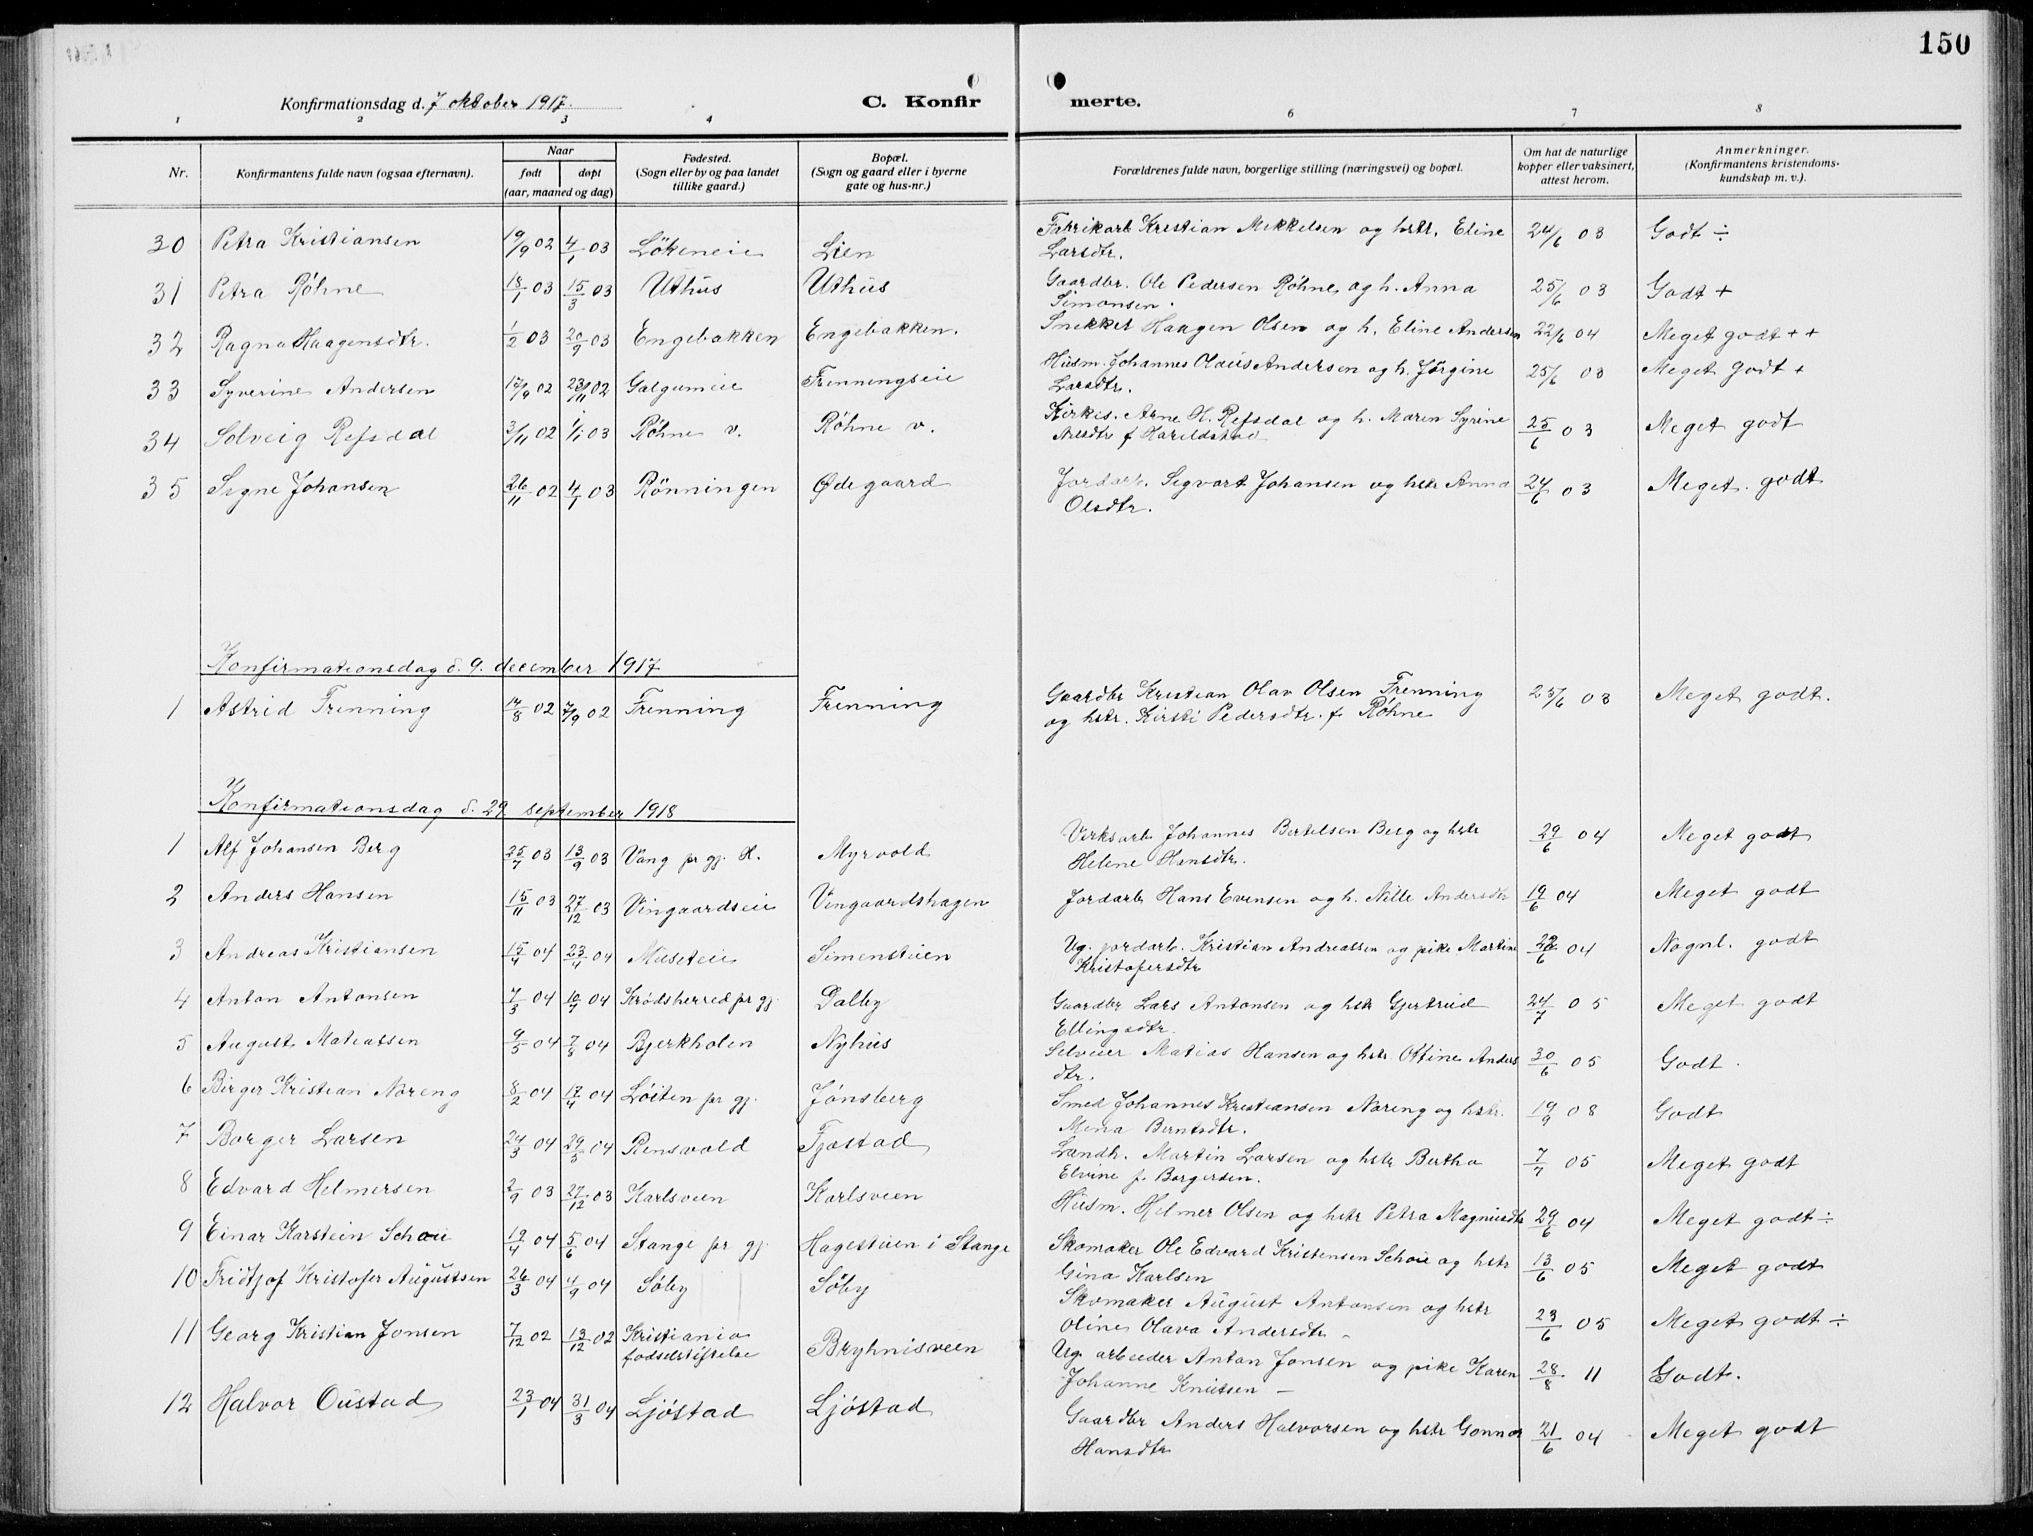 150
Konfirmationsdag d. 7 oktober 1917.
C. Konfirmerte.
1 2 3 4 6 7 8
Nr.
Konfirmantens fulde navn (ogsaa efternavn).
Naar
født døpt
(aar, maaned og dag)
Fødested.
(Sogn eller by og paa landet
tillike gaard.)
Bopæl.
(Sogn og gaard eller i byerne
gate og hus-nr.)
Forældrenes fulde navn, borgerlige stilling (næringsvei) og bopæl.
Om hat de naturlige
kopper eller vaksinert,
attest herom.
Anmerkninger.
(Konfirmantens kristendoms-
kundskap m. v.).
30 Petra Kristiansen 19/9 02 4/1 03 Lökeneie Lien Fabrikarb Kristian Mikkelsen og hstr. Eline 24/6 03 Godt ÷
Larsdtr.
31 Petra Röhne 18/1 03 15/3 03 Uthus Uthus Gaardbr. Ole Pedersen Röhne og h. Anna 25/6 03 Godt +
Simonsen.
32 Ragna Haagensdtr. 1/2 03 20/9 03 Engebakken Engebakken. Snekker Haagen Olsen og h. Eline Andersen 22/6 04 Meget godt + +
33 Syverine Andersen 17/9 02 23/11 02 Galgumeie Frenningseie Husm. Johannes Olaus Andersen og h. Jörgine 25/6 03 Meget godt +
Larsdtr.
34 Solveig Refsdal 3/11 02 1/1 03 Röhne v. Röhne v. Kirkes. Arne H. Refsdal og h. Maren Syrine 25/6 03 Meget godt
Nilsdtr f Haraldstad
35 Signe Johansen 26/11 02 4/1 03 Rönningen Ødegaard Jordarb. Segvart Johansen og hstr Anna 24/6 03 Meget godt
Olsdtr.
Konfirmationsdag d. 9. december 1917
1 Astrid Frenning 14/8 02 7/9 02 Frenning Frenning Gaardbr Kristian Olav Olsen Frenning 25/6 03 Meget godt.
og hstr. Kirsti Pedersdtr. f Röhne
Konfirmationsdag d. 29 september 1918
1 Alf Johansen Berg 25/7 03 13/9 03 Vang pr gj. H. Myrvold Virksarb Johannes Bertelsen Berg og hstr 29/6 04 Meget godt
Helene Hansdtr.
2 Anders Hansen 15/11 03 27/12 03 Vingaardseie Vingaardshagen Jordarb Hans Evensen og h. Nille Andersdtr 19/6 04 Meget godt
3 Andreas Kristiansen 15/4 04 23/4 04 Musteie Simenstuen Ug. jordarb. Kristian Andreassen og pike Martine 22/6 04 Nognl. godt
Kristofersdtr
4 Anton Antonsen 7/3 04 10/7 04 Krödsherred pr gj. Dalby Gaardbr Lars Antonsen og hstr Gjertrud 24/7 05 Meget godt
Ellingsdtr.
5 August Matiassen 9/5 04 7/8 04 Bjerkholen Nyhus Selveier Matias Hansen og hstr Ottine Anders 30/6 05 Godt.
dtr.
6 Birger Kristian Noreng 8/2 04 17/4 04 Löiten pr gj. Jönsberg Smed Johannes Kristiansen Noreng og hstr. 19/9 08 Godt
Mena Berntsdtr.
7 Borger Larsen 24/3 04 29/5 04 Rensvold Fjæstad Landh. Martin Larsen og hstr Bertha 7/7 05 Meget godt
Elvine f. Borgersen.
8 Edvard Helmersen 2/9 03 27/12 03 Karlsveen Karlsveen Husm. Helmer Olsen og hstr Petra Magnusdtr 29/6 04 Meget godt ÷
9 Einar Karstein Schou 19/4 04 5/6 04 Stange pr gj. Hagestuen i Stange Skomaker Ole Edvard Kristensen Schou og hstr 13/6 05 Meget godt
Gina Karlsen
10 Fridtjof Kristofer Augustsen 26/3 04 4/9 04 Söby Söby Skomaker August Antonsen og hstr 23/6 05 Meget godt ÷
Oline Olava Andersdtr
11 Georg Kristian Jonsen 7/12 02 13/12 02 Kristiania Bryhnisveen Ug. arbeider Anton Jonsen og pike Karen 28/8 11 Godt.
fodselstiftelse Johanne Knutsen –
12 Halvor Oustad 23/1 04 31/3 04 Ljöstad Ljöstad Gaardbr Anders Halvorsen og hstr Gonnor 21/6 04 Meget godt
Hansdtr